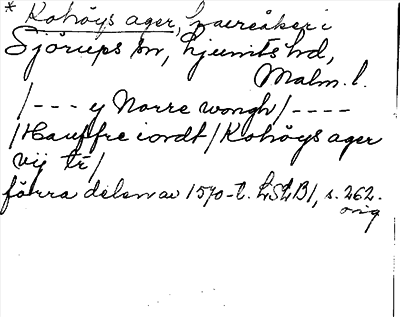 * Kohöys ager, havreåker i
Sjörups sn, Ljunits hd,
Malm. l.
/--- y Norre wongh/----
/Hauffre iordt/Kohöys ager
vij tr/
förra delen av 1570-t. LSLB1, s. 262.
orig